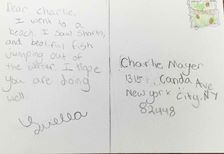 Dear Charlie,
I went to a
beach. I said sharks,
and beatiful fish
jumping out of
the water. I hope
you are doing
well.
Charlie Mayer
Canda Ave
New york City, NY
82448